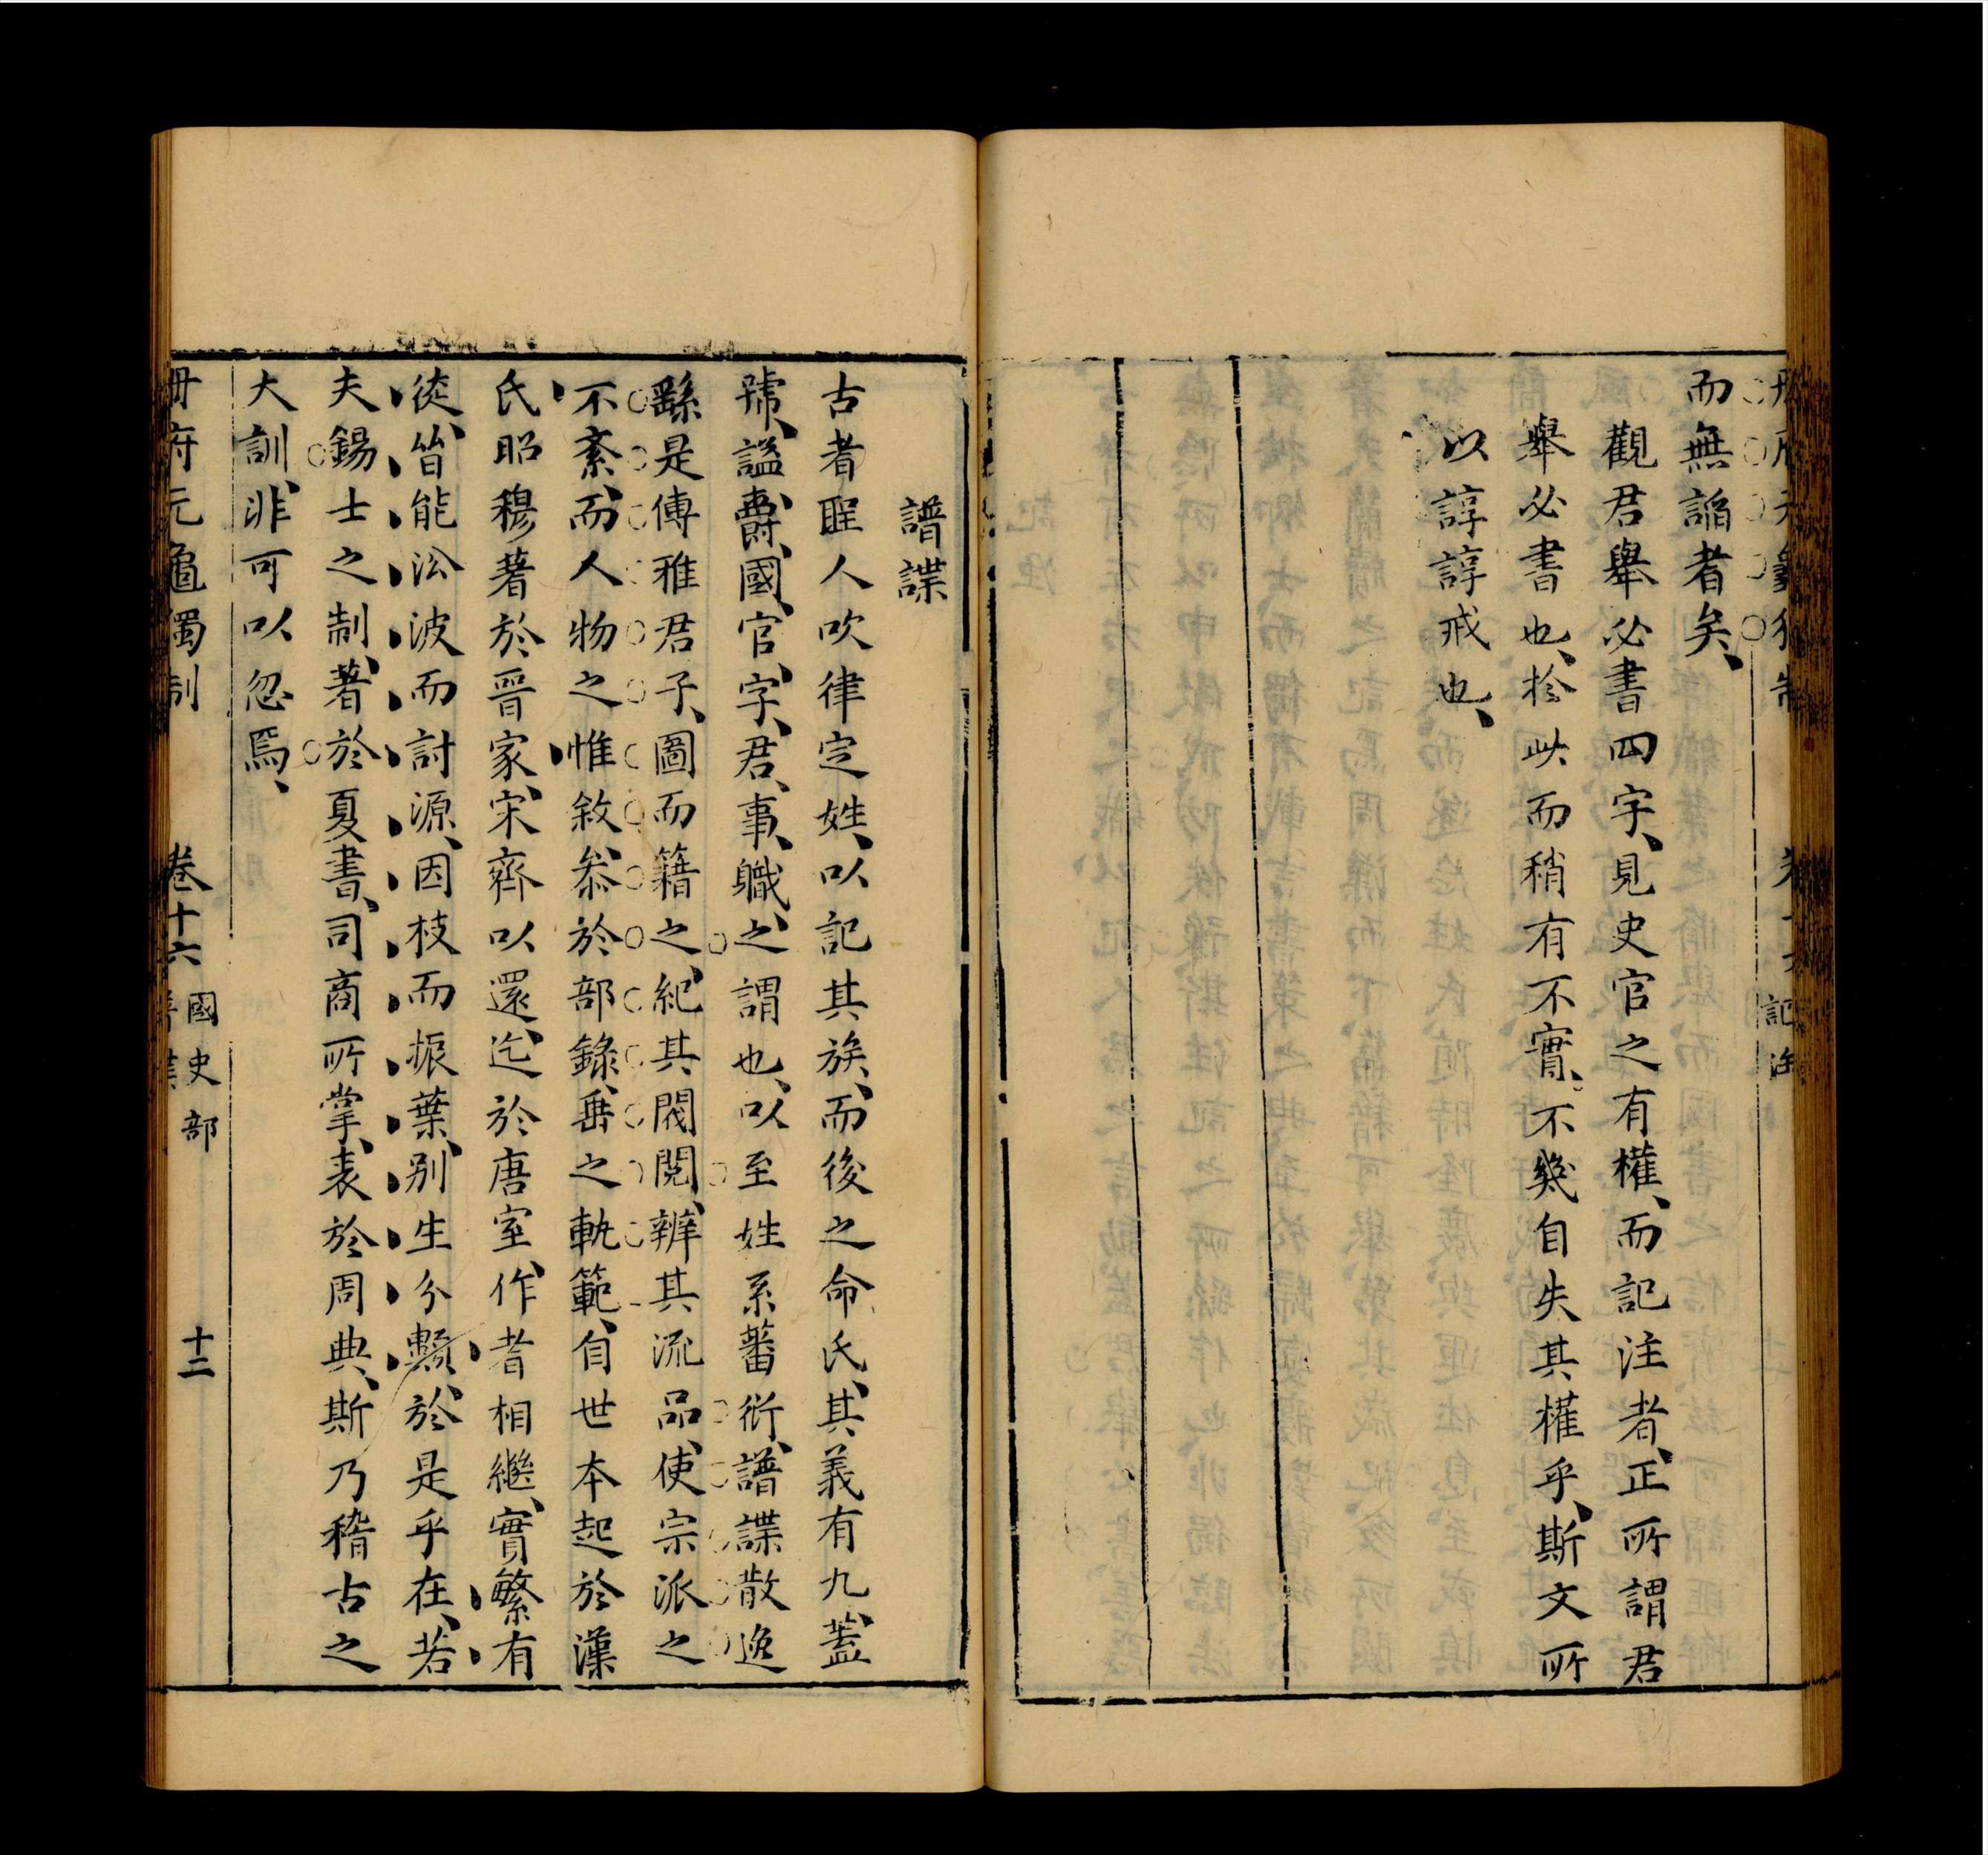 而無諂者矣、
觀君舉必書四字、見史官之有權、而記注者、正所謂君
舉必書也、於此而稍有不實、不幾自失其權乎、斯文所
以諄諄戒也、
譜諜
古者聖人吹律定姓、以記其族、而後之命氏、其義有九、蓋
號、諡、爵、國、官、字、君、事、職、之謂也、以至姓系蕃衍、譜諜散逸
繇是傳雅君子、圖而籍之、紀其閥閱、辨其流品、使宗派之
不紊、而人物之惟敘、叅於部錄、垂之軌範、自世本起於漢
氏昭穆著於晉家、宋齊以還、迄於唐室、作者相繼、實繁有
徒、皆能沿波而討源、因枝而振葉、別生分類、於是乎在、若
夫錫士之制、著於夏書、司商所掌、表於周典、斯乃稽古之
大訓、非可以忽焉、
冊府元龜獨制
卷十六
國史部
十二